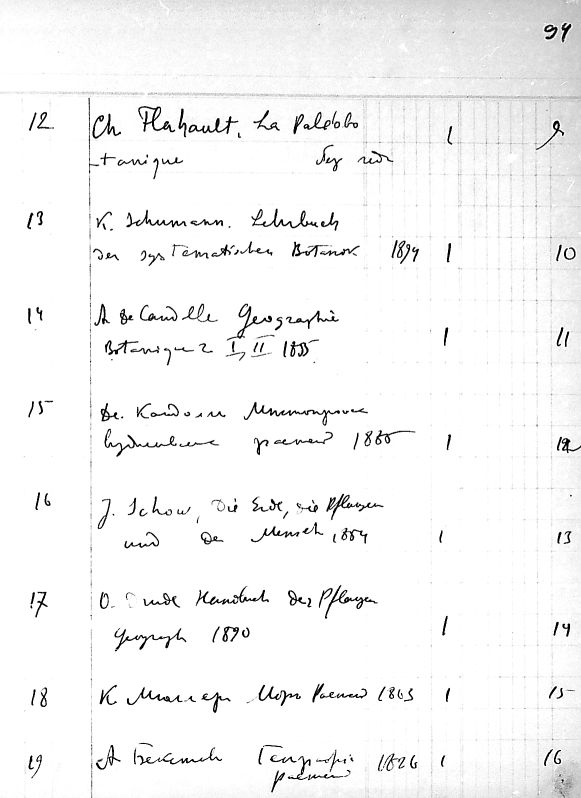 94
12 Ch Flahault, La Paléobo 1 9
-tanique без года
13 K. Schumann. Lehrbuch
der systematischen Botanik 1894 1 10
14 A DeCandolle Geographie
Botanique 2 I, II 1855 1 11
15 Де. Кандоль Местопроисх
возделыв растений 1885 1 12
16 J. Schow, Die Erde, die Pflanzen
und der Mensch 1854 1 13
17 O. Drude Handbuch der Pflanzen
geograph 1890 1 14
18 К Мюллер Мир Растений 1863 1 15
19 А Бекетов География 1826 1 16
растений